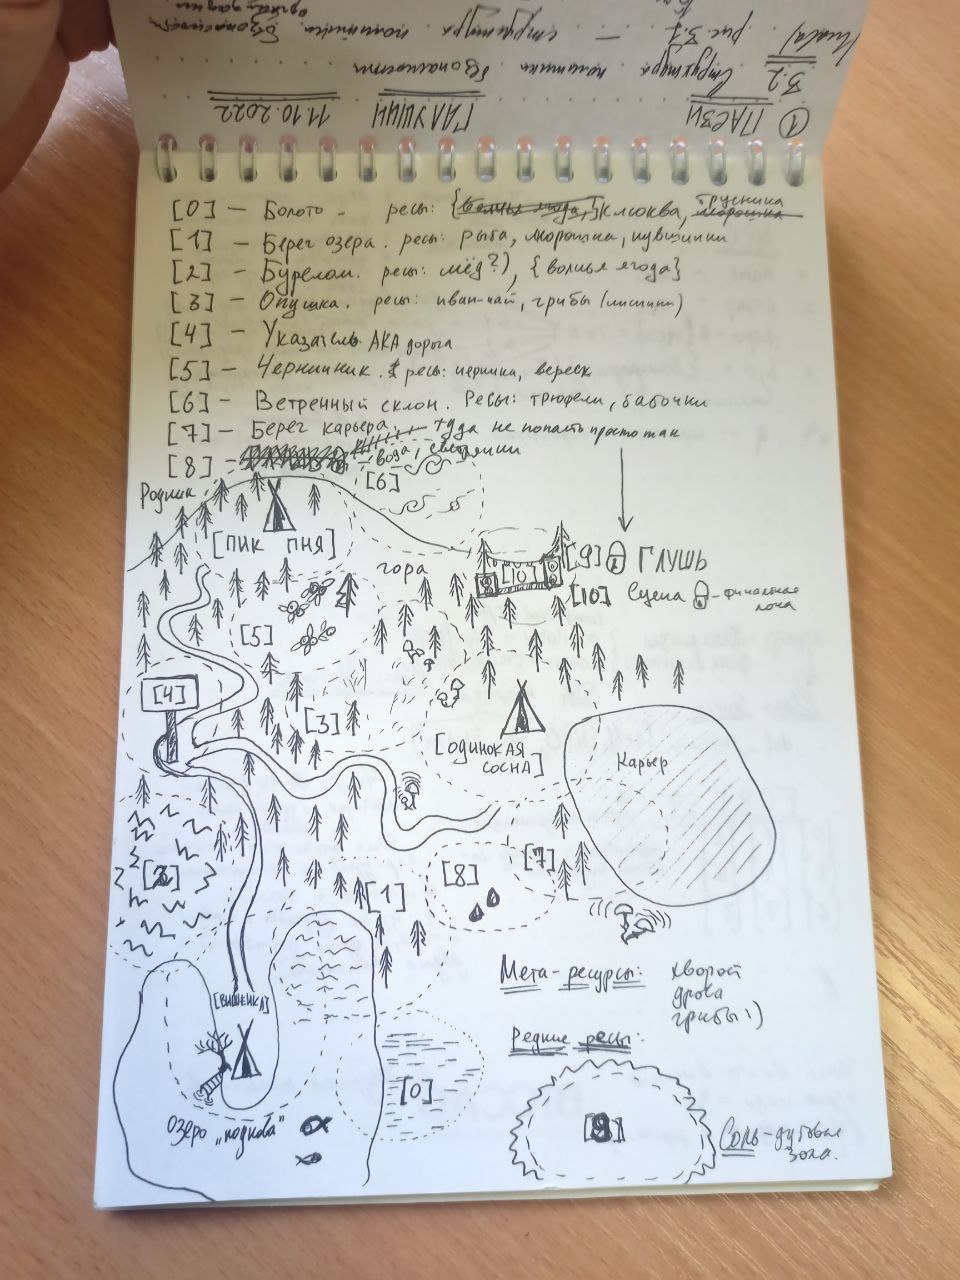 ① ПАСЗИ ГАЛУШИН 11.10.2022
3.2 Структура политики безопасности
рис. 3.1 — структура политики безопасности
[0] — Болото - ресы: {волчья ягода,} клюква, брусника морошка
[1] — Берег озера. ресы: рыба, морошка, кувшинки
[2] — Бурелом. ресы: мёд?), {волчья ягода}
[3] — Опушка. ресы: иван-чай, грибы (лисички)
[4] — Указатель АКА дорога
[5] — Черничник. ресы: черника, вереск
[6] — Ветренный склон. Ресы: трюфели, бабочки
[7] — Берег карьера, туда не попасть просто так
[8] — вода, светлячки
Родник
[6]
[ПИК ПНЯ]
гора
[10]
[9] ГЛУШЬ
[10] Сцена - финальная
лока
[5]
[4]
[3]
[ОДИНОКАЯ
СОСНА]
Карьер
[2]
[1]
[8]
[7]
Мета-ресурсы: хворост
дрова
грибы :)
[ВИШЕНКА]
Редкие ресы:
[0]
[9]
озеро „подкова"
Соль-дубовая
зола.